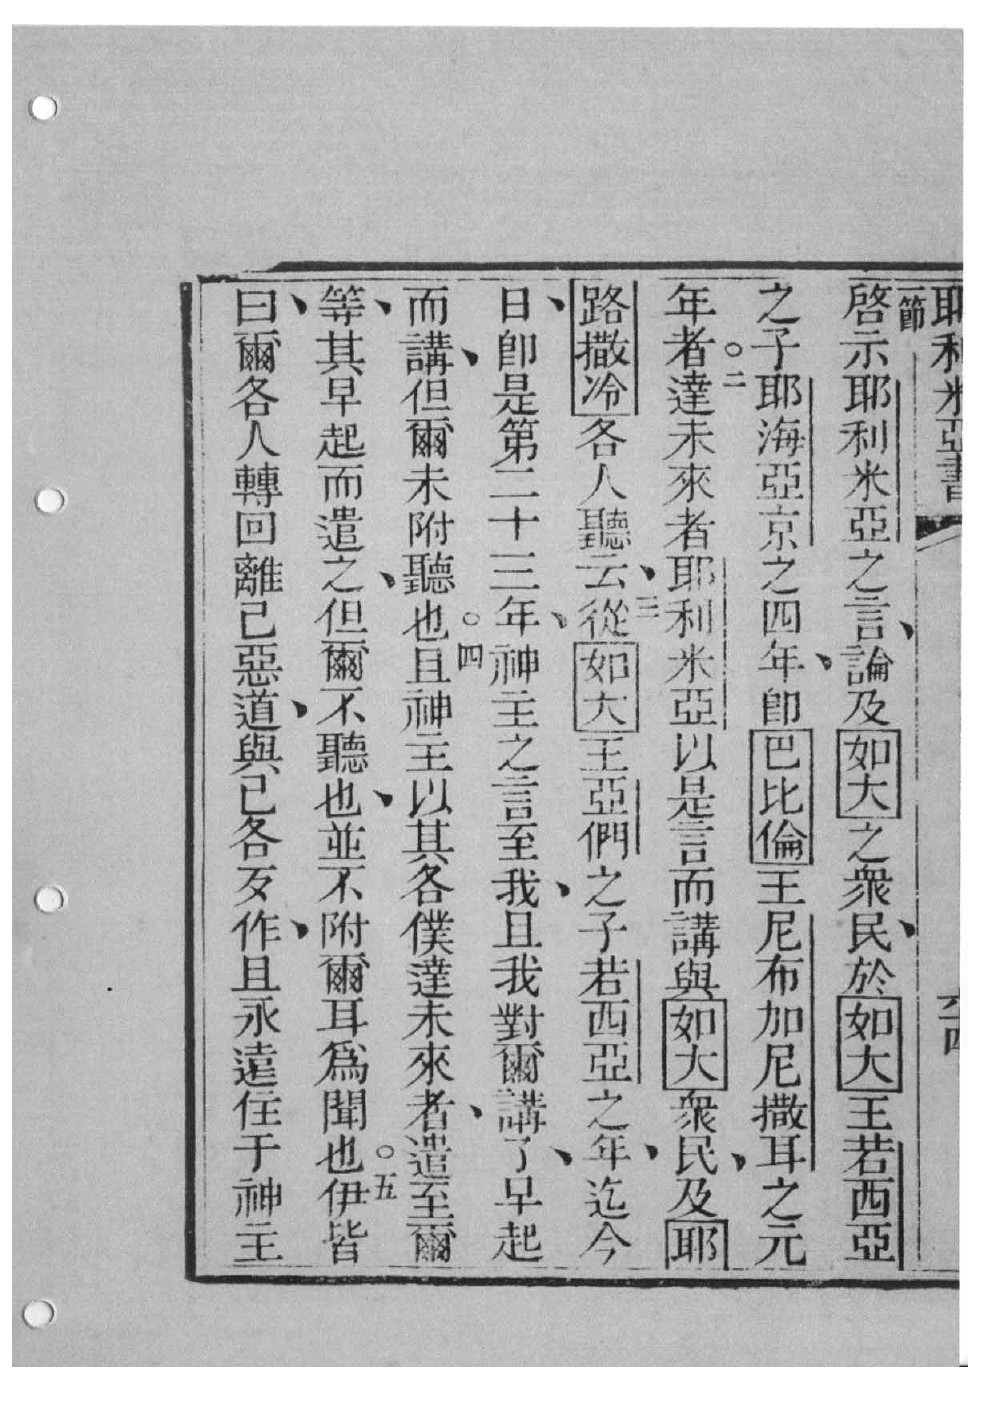 耶利米亞書 六十四
一節
啓示耶利米亞之言、論及如大之衆民、於如大王若西亞
之子耶海亞京之四年、卽巴比倫王尼布加尼撒耳之元
年者。二達未來者耶利米亞以是言而講與如大衆民、及耶
路撒冷各人聽云、三從如大王亞們之子若西亞之年、迄今
日、卽是第二十三年、神主之言至我、且我對爾講了、早起
而講、但爾未附聽也。四且神主以其各僕達未來者、遣至爾
等、其早起而遣之、但爾不聽也、並不附爾耳爲聞也。五伊皆
曰、爾各人轉回離己惡道、與己各歹作、且永遠住于神主